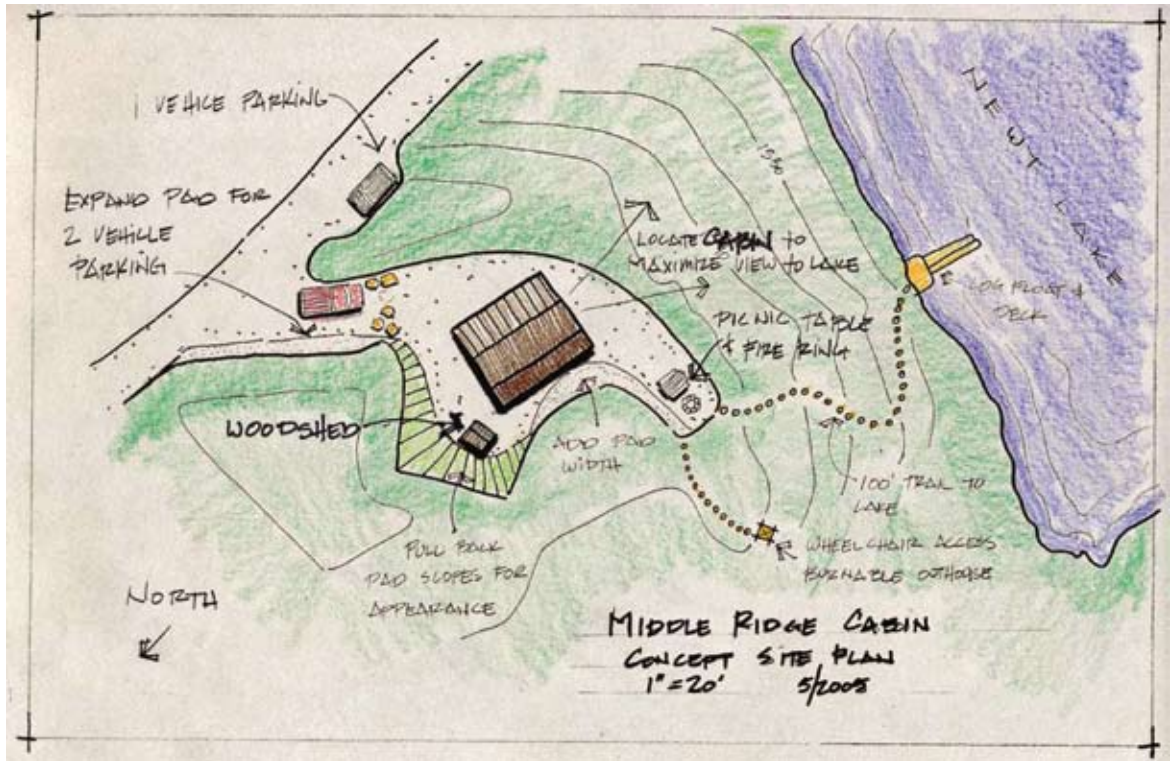 1 VEHICE PARKING
EXPAND PAD FOR
2 VEHICLE
PARKING
NEWT LAKE
1550
LOCATE CABIN TO
MAXIMIZE VIEW TO LAKE
LOG FLOAT &
DECK
PICNIC TABLE
& FIRE RING
WOODSHED
ADD PAD
WIDTH
100' TRAIL TO
LAKE
PULL BACK
PAD SLOPES FOR
APPEARANCE
WHEELCHAIR ACCESS
BURNABLE OUTHOUSE
NORTH
MIDDLE RIDGE CABIN
CONCEPT SITE PLAN
1"=20' 5/2005